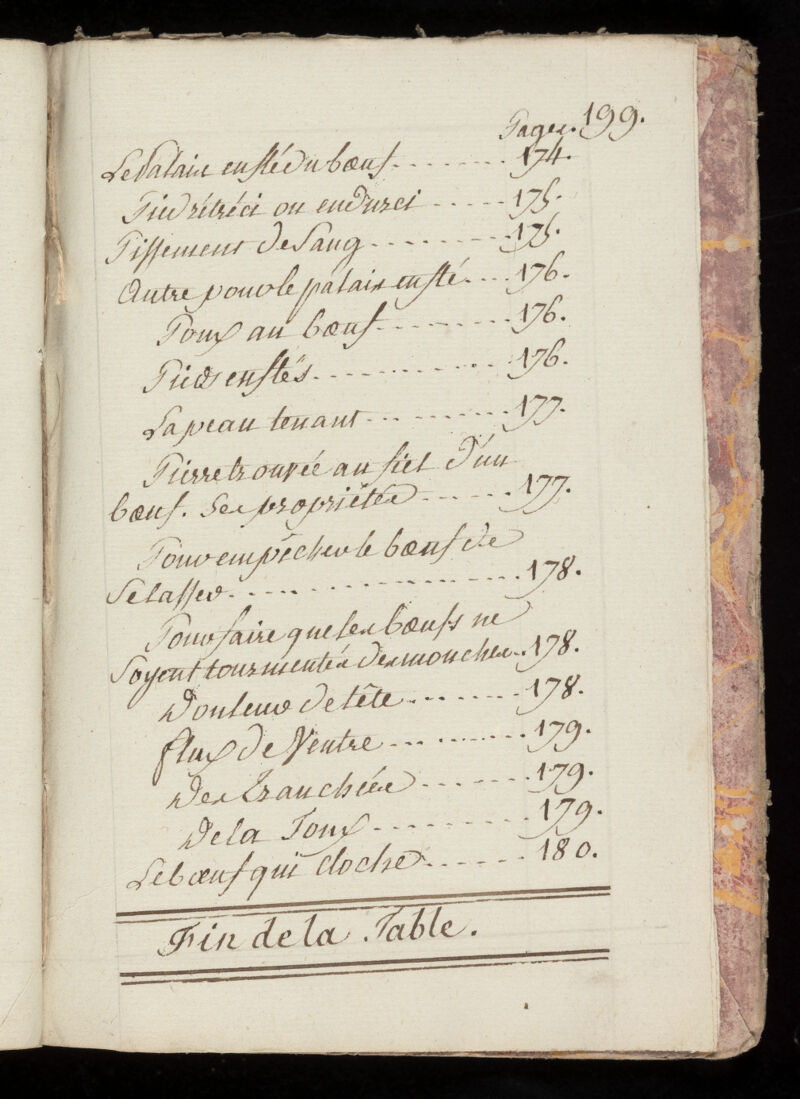 Pages. 199.
Le Palais enflé du bœuf........ 174.
Pied rétréci ou endurci ..... 175.
Pissement de Sang......... 175.
Autre pour le palais enflé.... 176.
Toux au bœuf......... 176.
Pieds enflés............ 176.
La peau tenant......... 177.
Pierre trouvée au fiel d'un
bœuf. Ses propriétés...... 177.
Pour empêcher le bœuf de
Se lasser................. 178.
Pour faire que les bœufs ne
Soyent tourmentés des mouches.. 178.
Douleur de tête........ 178.
flux de Ventre......... 179.
Des Tranchées....... 179.
De la Toux.......... 179.
Le bœuf qui cloche....... 180.
Fin de la Table.